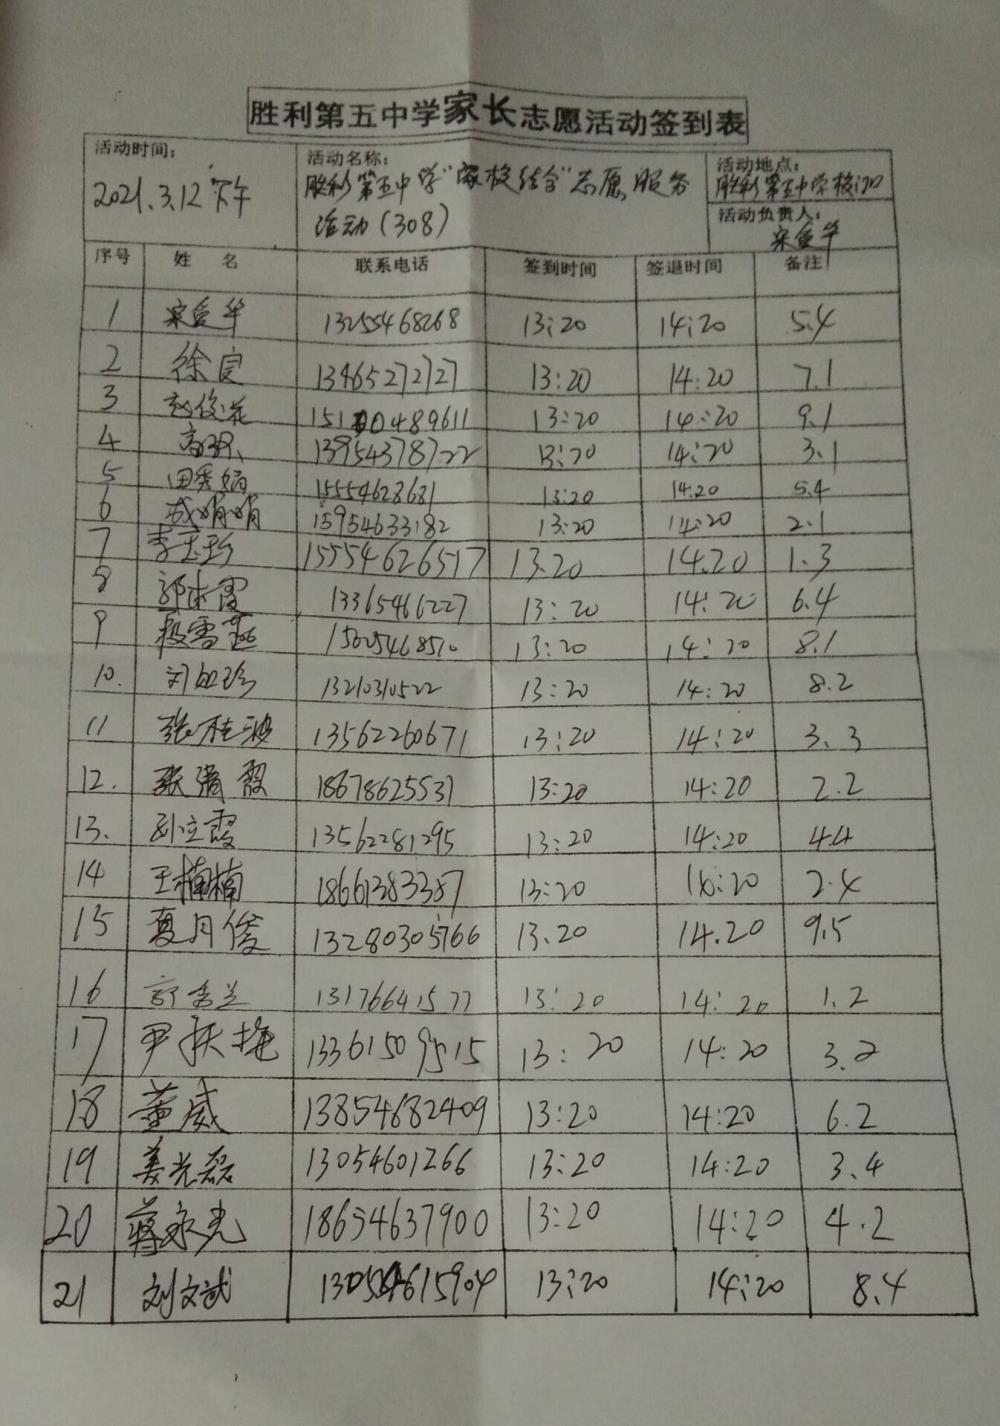 胜利第五中学家长志愿活动签到表
活动时间： 活动名称： 活动地点：
2021.3.12下午 胜利第五中学“家校结合”志愿服务 胜利第五中学校门口
活动(308) 活动负责人：
宋爱华
序号 姓 名 联系电话 签到时间 签退时间 备注
1 宋爱华 13255468268 13:20 14:20 5.4
2 徐良 13465272727 13:20 14:20 7.1
3 赵俊花 15120489611 13:20 14:20 9.1
4 13954378722 13:20 14:20 3.1
5 田秀娟 15554628681 13:20 14.20 5.4
6 成娟娟 15954633182 13:20 14:20 2.1
7 李玉珍 15554626517 13.20 14.20 1.3
8 郭术霞 13365466227 13:20 14:20 6.4
9 段雪燕 15605468510 13:20 14:20 8.1
10. 13210310522 13:20 14:20 8.2
11 张桂波 13562260671 13:20 14:20 3.3
12. 张清霞 18678625537 13:20 14:20 2.2
13. 孙立霞 13562281295 13:20 14:20 4.4
14 王楠楠 18661383387 13:20 14:20 2.4
15 夏月俊 13280305766 13.20 14.20 9.5
16 舒秀兰 13176641577 13:20 14:20 1.2
17 尹秋艳 13361509515 13:20 14:20 3.2
18 董威 13854682409 13:20 14:20 6.2
19 姜光磊 13054601266 13:20 14:20 3.4
20 蒋永光 18654637900 13:20 14:20 4.2
21 刘文武 13054615904 13:20 14:20 8.4